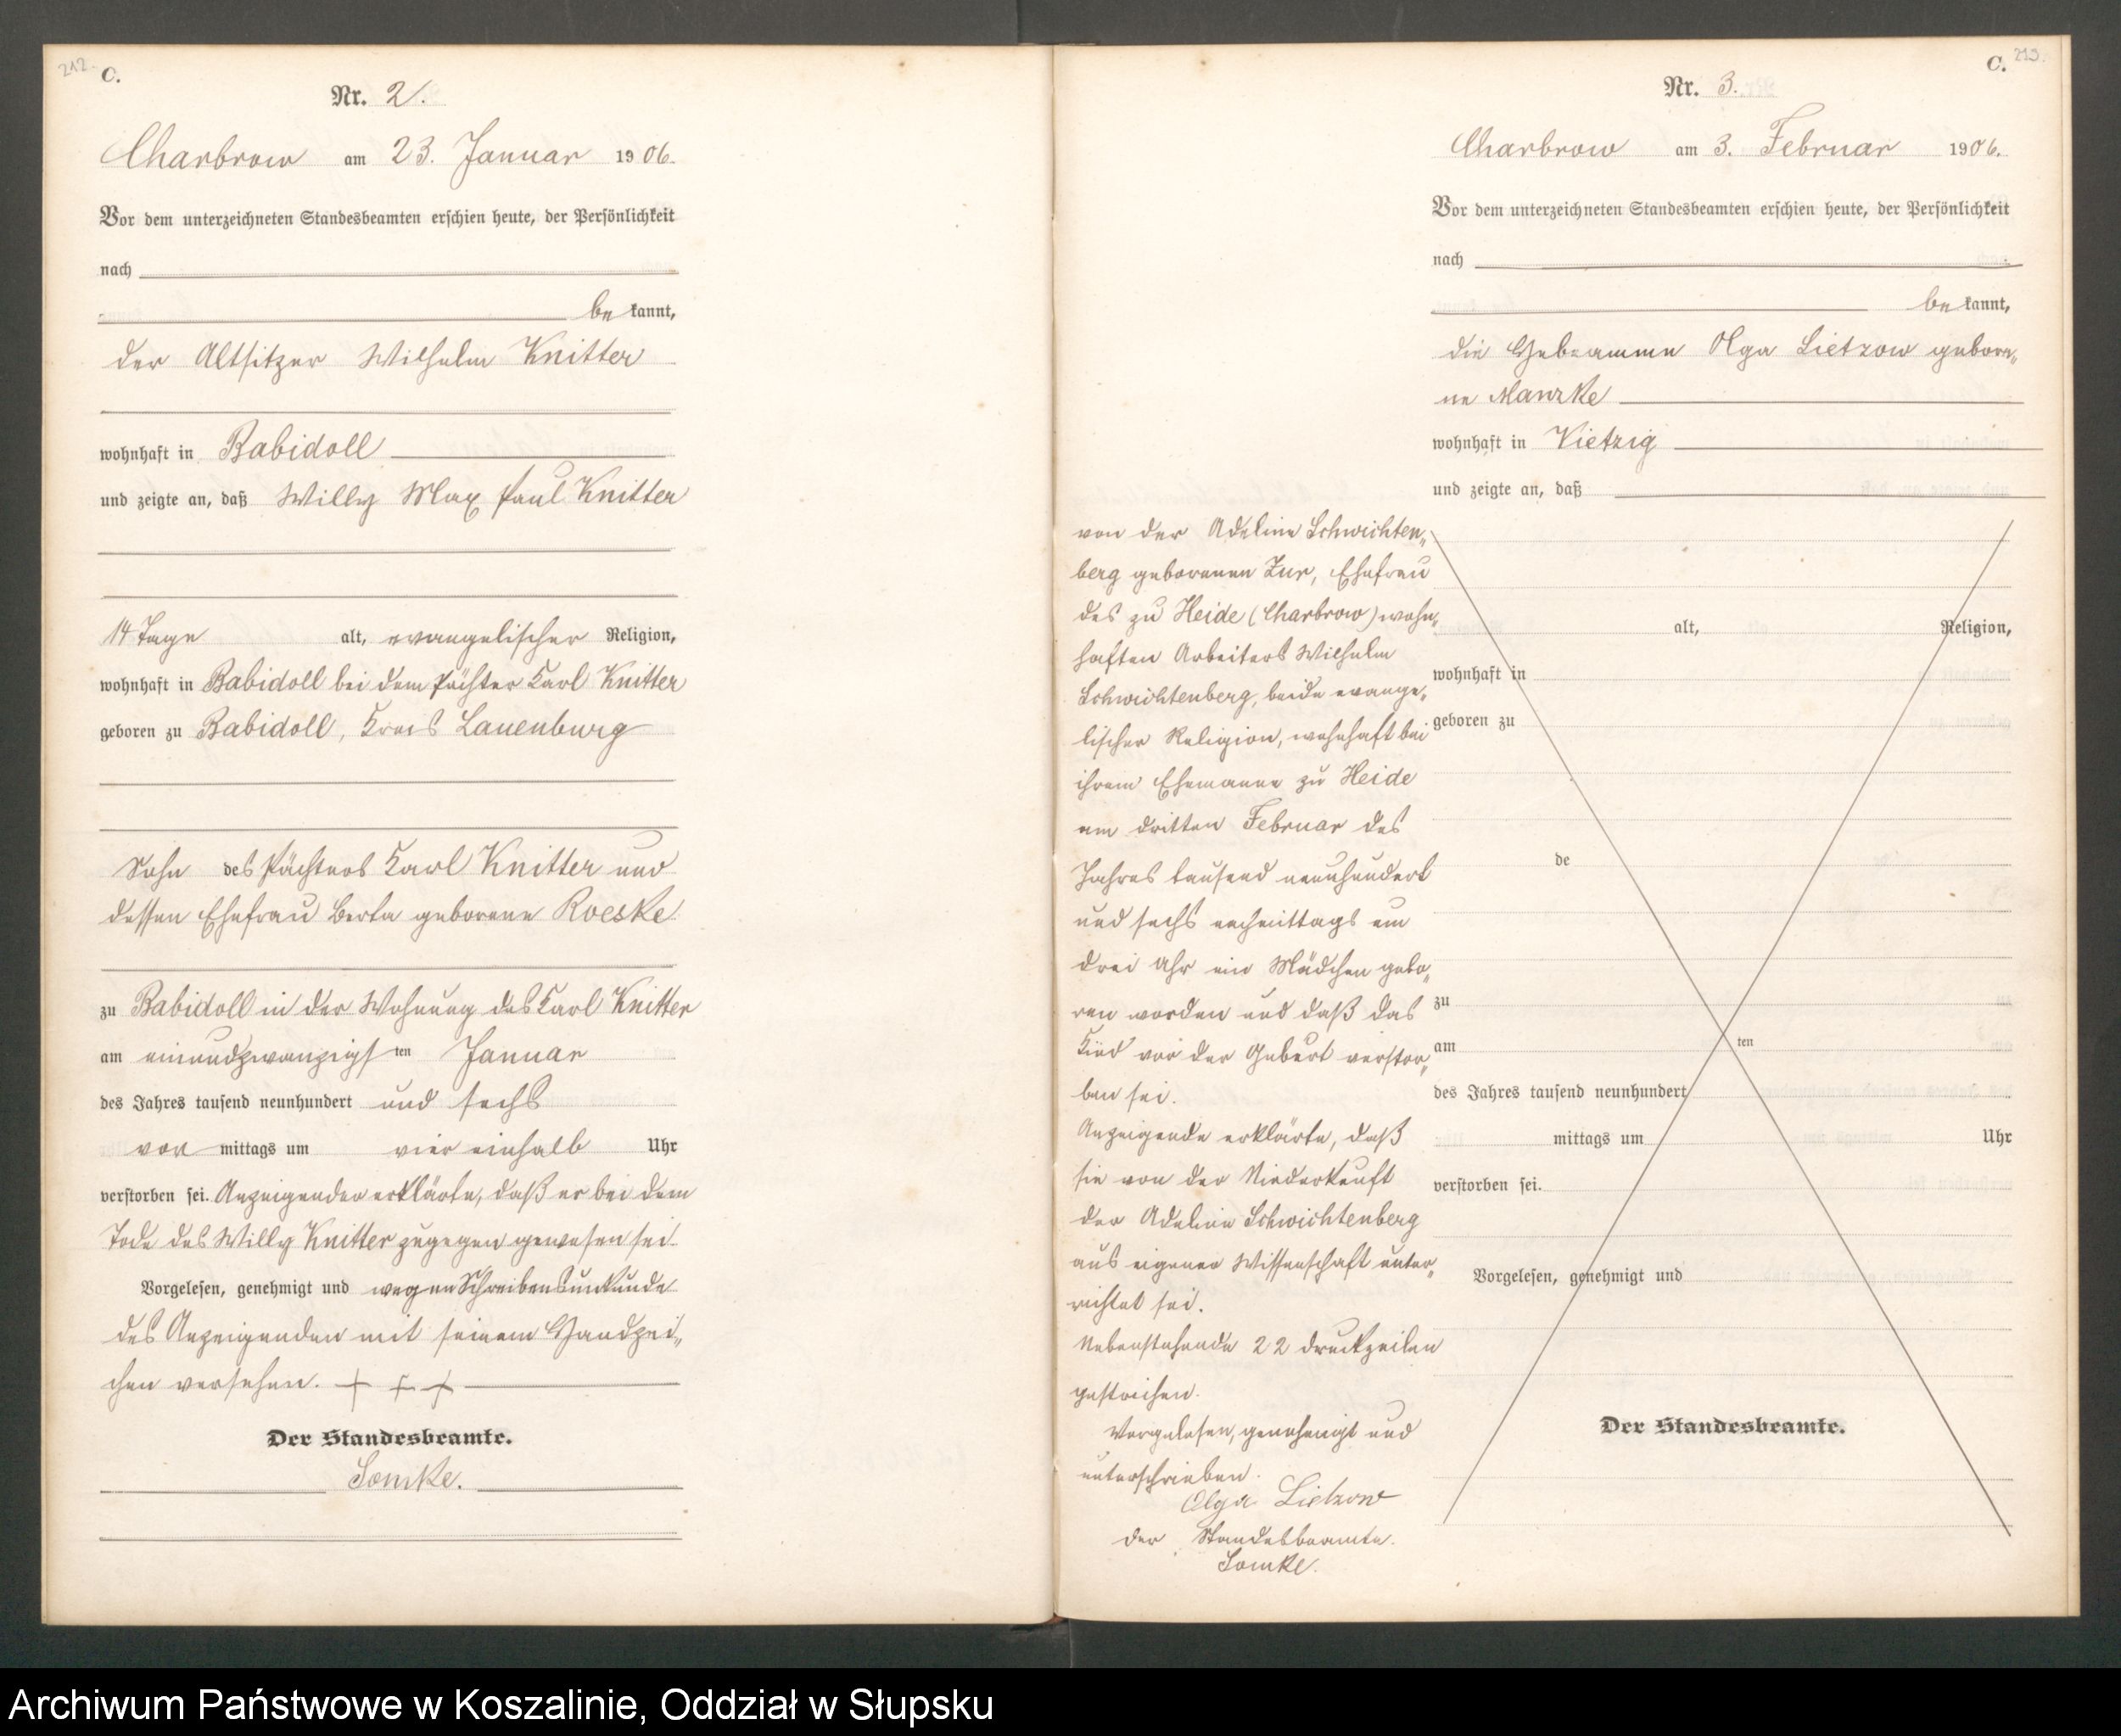 212.
C.
Nr. 2.
Charbrow am 23. Januar 1906.
Vor dem unterzeichneten Standesbeamten erschien heute, der Persönlichkeit
nach
be kannt,
der Altsitzer Wilhelm Knitter
wohnhaft in Babidoll
und zeigte an, daß Willy Max Paul Knitter
14 Tage alt, evangelischer Religion,
wohnhaft in Babidoll bei dem Pächter Karl Knitter
geboren zu Babidoll, Kreis Lauenburg
Sohn des Pächters Karl Knitter und
dessen Ehefrau Berta geborene Roeske
zu Babidoll in der Wohnung des Karl Knitter
am einundzwanzigsten Januar
des Jahres tausend neunhundert und sechs
vor mittags um vier einhalb Uhr
verstorben sei. Anzeigender erklärte, daß er bei dem
Tode des Willy Knitter zugegen gewesen sei.
Vorgelesen, genehmigt und wegen Schreibensunkunde
des Anzeigenden mit seinem Handzei„
chen versehen. + + +
Der Standesbeamte.
Somke.
C. 213.
Nr. 3.
Charbrow am 3. Februar 1906.
Vor dem unterzeichneten Standesbeamten erschien heute, der Persönlichkeit
nach
be kannt,
die Hebeamme Olga Lietzow gebore„
ne Manzke
wohnhaft in Vietzig
und zeigte an, daß
von der Adeline Schwichten„
berg geborenen Zur, Ehefrau
des zu Heide (Charbrow) wohn„
haften Arbeiters Wilhelm
Schwichtenberg, beide evange„
lischer Religion, wohnhaft bei
ihrem Ehemanne zu Heide
am dritten Februar des
Jahres tausend neunhundert
und sechs nachmittags um
drei Uhr ein Mädchen gebo„
ren worden und daß das
Kind vor der Geburt verstor„
ben sei.
Anzeigende erklärte, daß
sie von der Niederkunft
der Adeline Schwichtenberg
aus eigener Wissenschaft unter„
richtet sei.
Nebenstehende 22 Druckzeilen
gestrichen.
Vorgelesen, genehmigt und
unterschrieben.
Olga Lietzow
Der Standesbeamte.
Somke.
alt, Religion,
wohnhaft in
geboren zu
de
zu
am ten
des Jahres tausend neunhundert
mittags um Uhr
verstorben sei.
Vorgelesen, genehmigt und
Der Standesbeamte.
Archiwum Państwowe w Koszalinie, Oddział w Słupsku